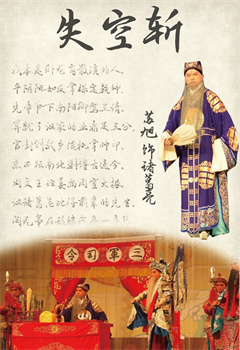 失空斩
我本是卧龙岗散淡的人，
平阴阳如反掌保定乾坤。
先帝爷下南阳御驾三请，
算就了汉家的业鼎足三分。
官封到武乡侯执掌帅印，
东西征南北剿博古通今。
周文王访姜尚周室大振，
汉诸葛怎比得前辈的先生。
闲无事在敌楼亮一
苏旭 饰 诸葛亮
三軍司令